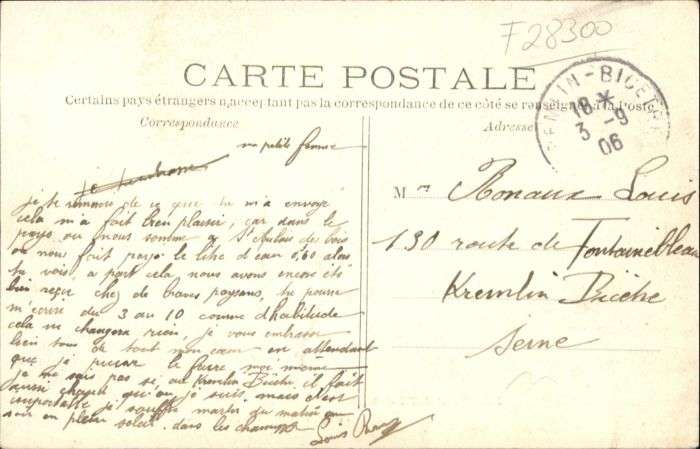 F28300
CARTE POSTALE
Certains pays étrangers n'acceptant pas la correspondance de ce côté se renseigner à la Poste
Correspondance
Adresse
KREMLIN-BICETRE
18 *
3 -9
06
ma petite femme
Je te remercie de ce que tu m'a envoyé
cela m'a fait bien plaisir, car dans le
pays ou nous somme a St de bois
on nous fait payé le litre d'eau 0,60 alors
tu vois, a part cela nous avons encore été
bien reçu chez de braves paysans, tu pourra
m'écrire du 3 au 10 comme d'habitude
cela ne changera rien, je vous embrasse
bien tous de tout mon cœur en attendant
que je puisse le faire moi même
je ne sais pas si au Kremlin Bicêtre il fait
aussi chaud qu'ou je suis mais c'est
je souffre du matin au
soir en plein soleil dans les champs
Louis
Mme Ronaux Louis
130 route de Fontainebleau
Kremlin Bicêtre
Seine